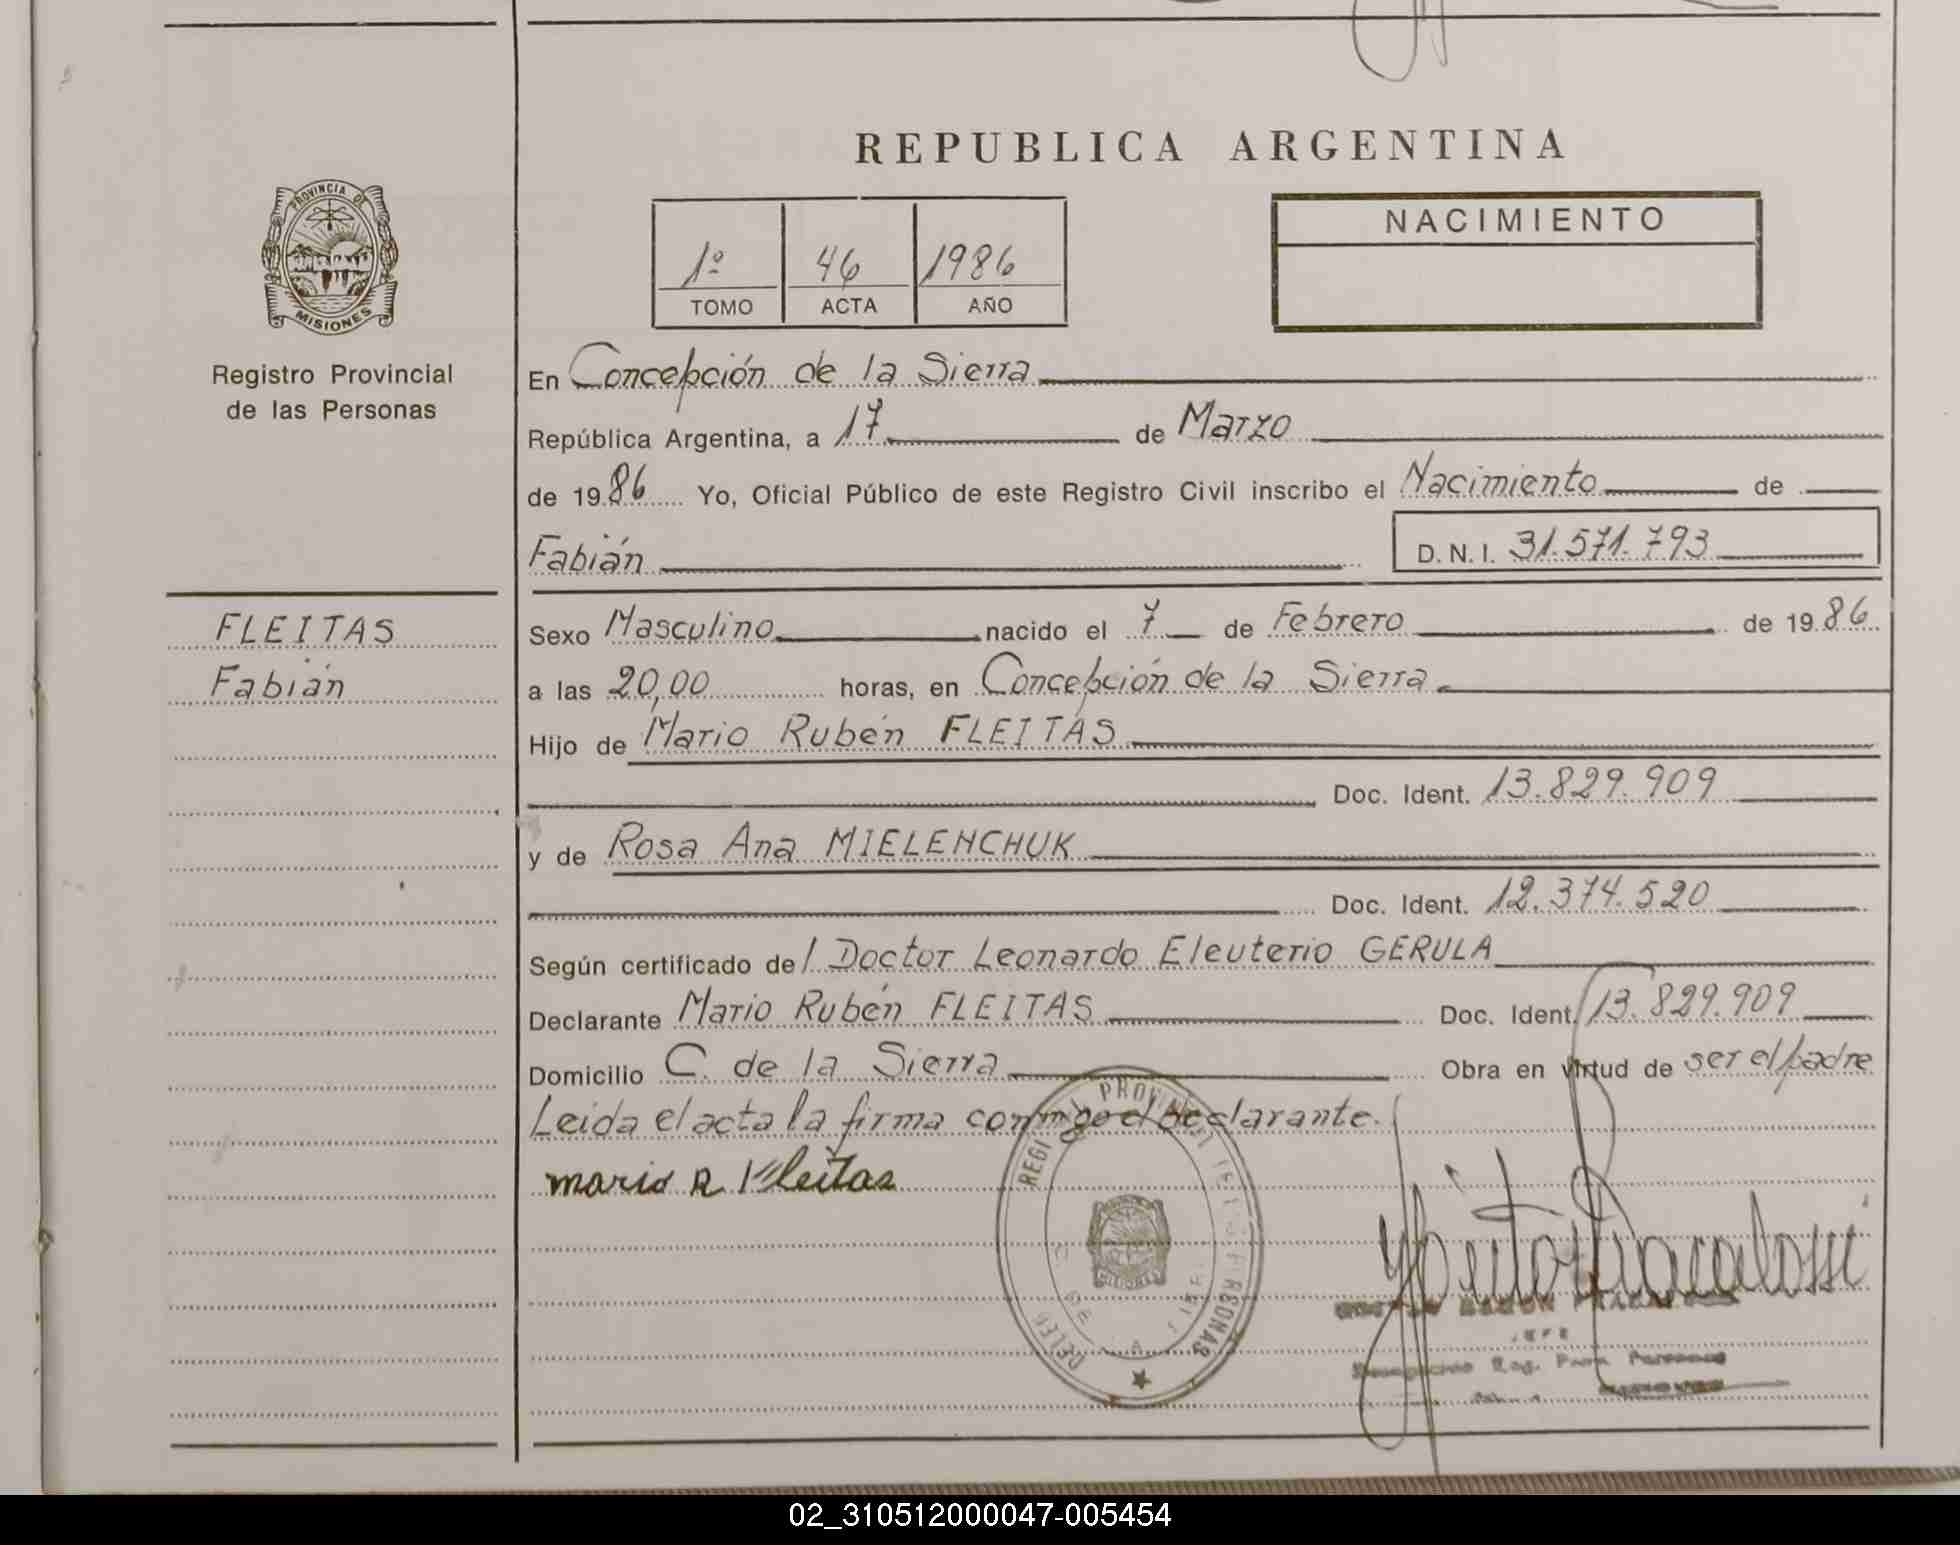 REPUBLICA ARGENTINA
PROVINCIA DE
MISIONES
Registro Provincial
de las Personas
1º 46 1986
TOMO ACTA AÑO
NACIMIENTO
En Concepción de la Sierra
República Argentina, a 17 de Marzo
de 1986 Yo, Oficial Público de este Registro Civil inscribo el Nacimiento de
Fabián D. N. I. 31.571.793
FLEITAS
Fabián
Sexo Masculino nacido el 7 de Febrero de 1986
a las 20,00 horas, en Concepción de la Sierra
Hijo de Mario Rubén FLEITAS
Doc. Ident. 13.829.909
y de Rosa Ana MIELENCHUK
Doc. Ident. 12.374.520
Según certificado del Doctor Leonardo Eleuterio GERULA
Declarante Mario Rubén FLEITAS Doc. Ident. 13.829.909
Domicilio C. de la Sierra Obra en virtud de ser el padre
Leida el acta la firma conmigo el declarante.
mario R Fleitas
MISIONES
JEFE
02_310512000047-005454